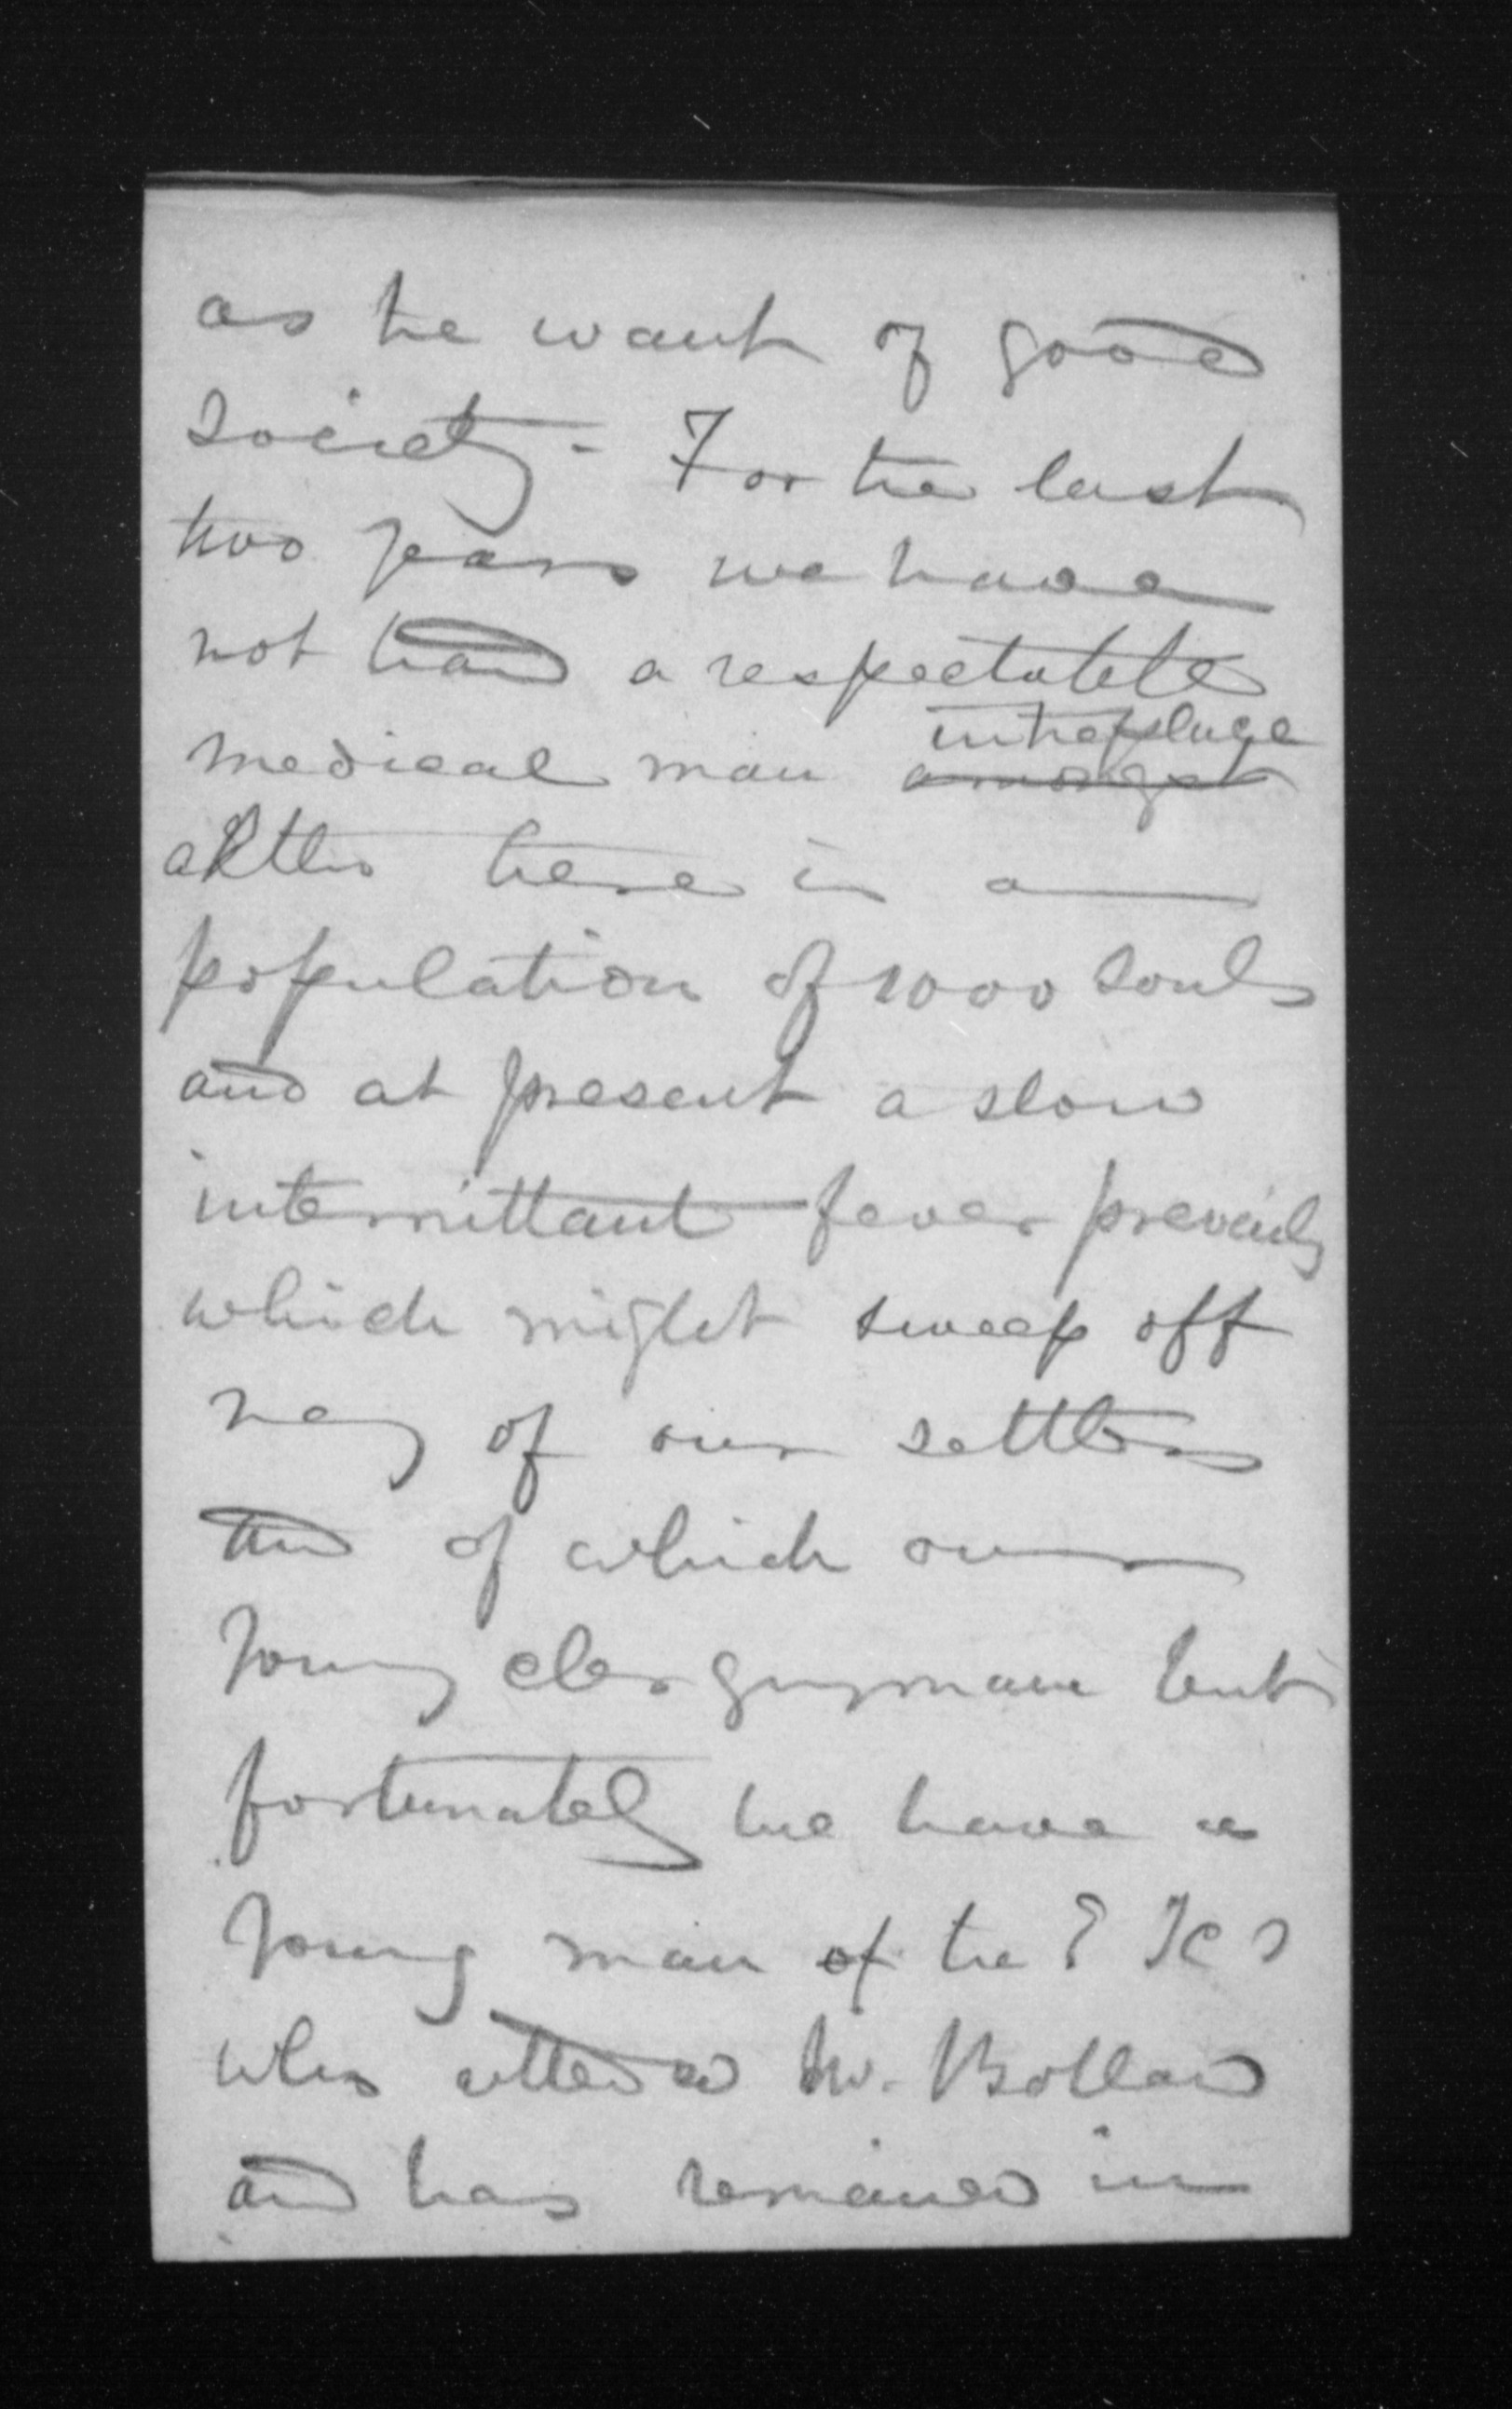 as the want of good
society - For the last
two years we have
not had a respectable
in the place
medical man amongst
altho there is a
population of 1000 souls
and at present a slow
intermittant fever prevails
which might sweep off
of our settlers
of which our
young clergyman but
fortunately we have a
young man of the
who attended Mr. Bollard
and has remained in